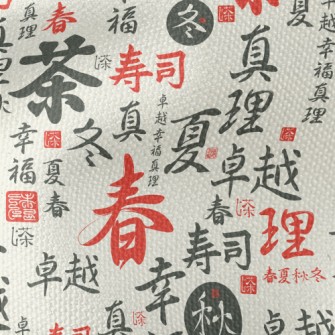 春
福
冬
夏
真理
茶
寿司
真理
幸福真理
真
卓越幸福真理
冬
夏
幸福
夏春
卓越
春
春
理
寿司
卓越
幸
春夏秋冬
秋
真